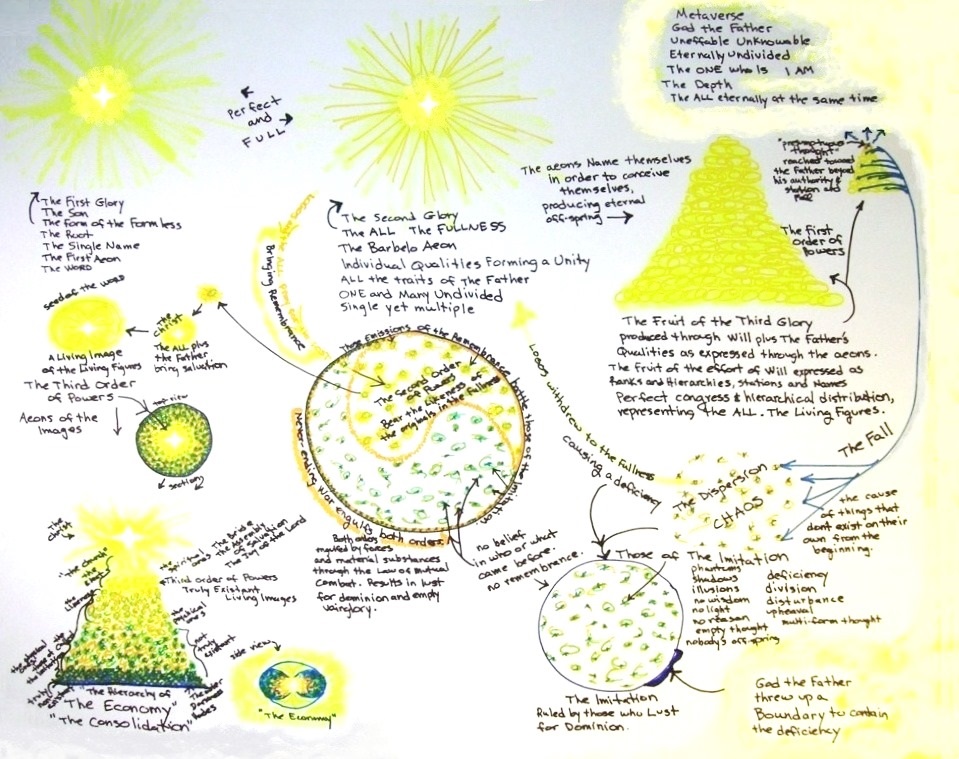 Metaverse
God the Father
Uneffable Unknowable
Eternally Undivided
The ONE who Is I AM
The Depth
The ALL eternally at the same time
Perfect
and
FULL
The First Glory
The Son
The form of the Formless
The Root
The Single Name
The First Aeon
The WORD
The Second Glory
The ALL The FULLNESS
The Barbelo Aeon
Individual Qualities forming a Unity
ALL the traits of The Father
ONE and Many Undivided
Single yet multiple
The aeons Name themselves
in order to conceive
themselves,
producing eternal
off-spring
thought"
reached toward
the Father beyond
his authority &
station and
The First
order of
Powers
The Fruit of the Third Glory
produced through Will plus The Father's
Qualities as expressed through the aeons.
The Fruit of the effort of Will expressed as
Ranks and Hierarchies, Stations and Names
Perfect congress & hierarchical distribution,
representing the ALL. The Living Figures.
Bringing Remembrance
seed of the word
The
Christ
A Living Image
of the Living Figures
The ALL plus
the Father
bring salvation
The Third Order
of Powers
Aeons of the
Images
top view
section
Those Emissions of the Remembrance battle those of the Imitation
The Second Order
of Powers
Bear the Likeness of
the originals in the Fullness
Never-ending War engulfs both orders
Both orders
engulfed by forces
and material substances
through the Law of Mutual
Combat. Results in lust
for dominion and empty
vainglory.
Logos withdrew to the Fullness
causing a deficiency
The Fall
The Dispersion
CHAOS
the cause
of things that
dont exist on their
own from the
beginning.
no belief
in who or what
came before.
no remembrance.
Those of The Imitation
phantoms
shadows
illusions
no wisdom
no light
no reason
empty thought
nobody's off-spring
deficiency
division
disturbance
upheaval
multi-form thought
The Imitation
Ruled by those who Lust
for Dominion.
God the Father
threw up a
Boundary to contain
the deficiency
The
Christ
The Bride
The Assembly
of Salvation
The Joy of the Lord
Third order of Powers
Truly Existent
Living Images
"The Hierarchy of
The Economy"
"The Consolidation"
side view
"The Economy"